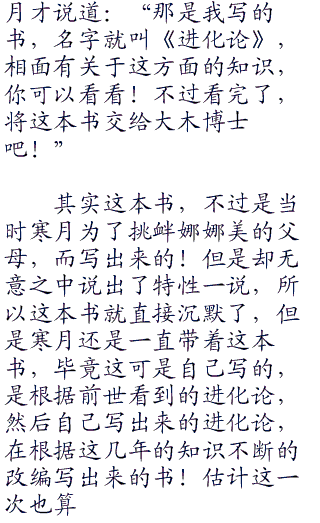 月才说道：“那是我写的
书，名字就叫《进化论》，
相面有关于这方面的知识，
你可以看看！不过看完了，
将这本书交给大木博士
吧！”
其实这本书，不过是当
时寒月为了挑衅娜娜美的父
母，而写出来的！但是却无
意之中说出了特性一说，所
以这本书就直接沉默了，但
是寒月还是一直带着这本
书，毕竟这可是自己写的，
是根据前世看到的进化论，
然后自己写出来的进化论，
在根据这几年的知识不断的
改编写出来的书！估计这一
次也算